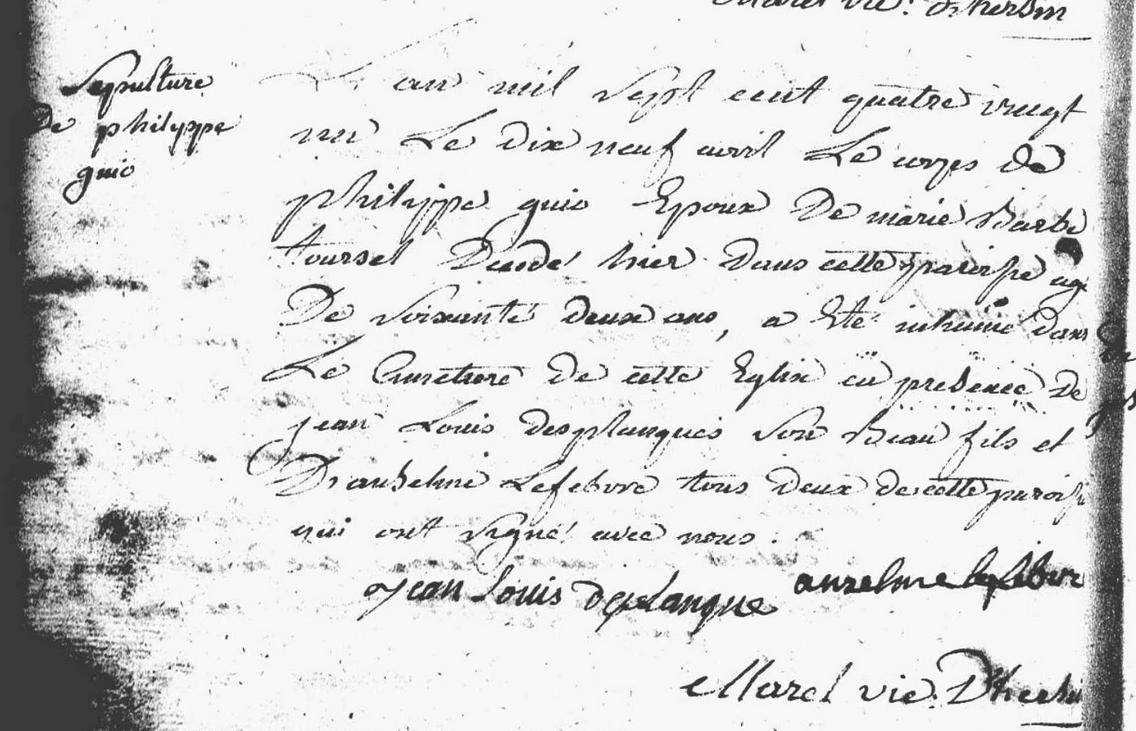 Marel vic. d'hersin
Sepulture
De philippe
guio
L'an mil sept cent quatre vingt
un Le dix neuf avril Le corps de
philippe guio Epoux De marie Barbe
toursel Decedé hier dans cette paroisse agé
De soixante deux ans, a Eté inhumé dans
Le Cimetiere de cette Eglise en presence De
jean Louis desplanques son Beau fils et
D'anselme Lefebvre tous deux de cette paroisse
qui ont signé avec nous.
jean Louis deplanque anselme lefebvre
Marel vic. D'hersin